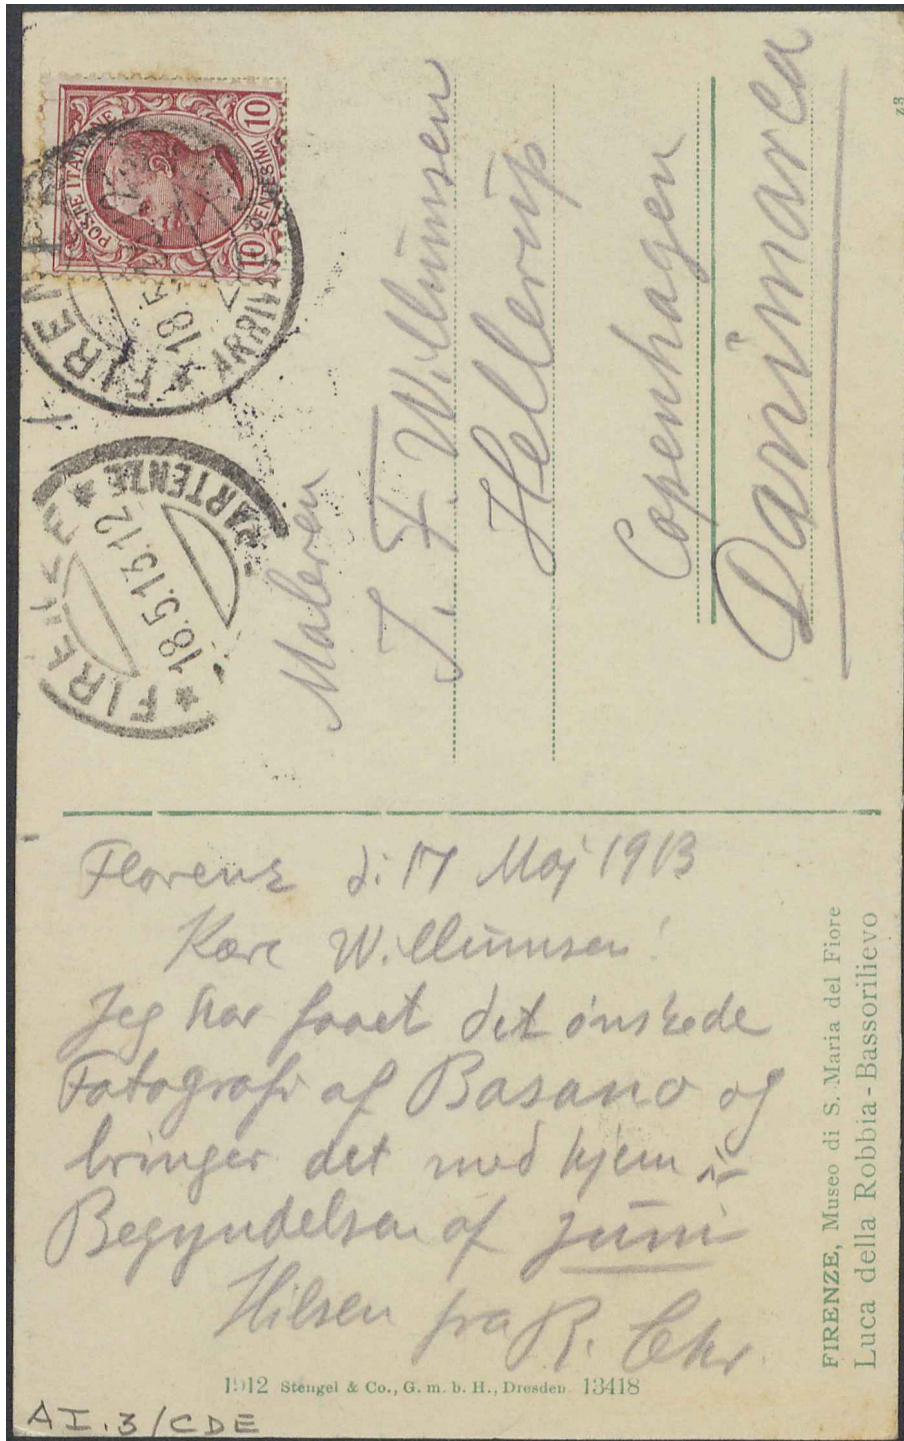 POSTE ITALIANE
10 CENTESIMI 10
FIRENZE
ARRIVI
FIRENZE
PARTENZE
18.5.13.12
Maleren
J. F. Willumsen
Hellerup
Copenhagen
Danimarca
Florenz d: 17 Maj 1913
Kære Willumsen!
Jeg har faaet det ønskede
Fotografi af Basano og
bringer det med hjem i
Begyndelsen af Juni
Hilsen fra R. Chr.
FIRENZE, Museo di S. Maria del Fiore
Luca della Robbia - Bassorilievo
1912 Stengel & Co., G. m. b. H., Dresden 13418
AI.3/CDE